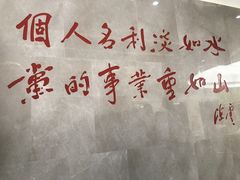 個人名利淡如水
黨的事業重如山
陈云